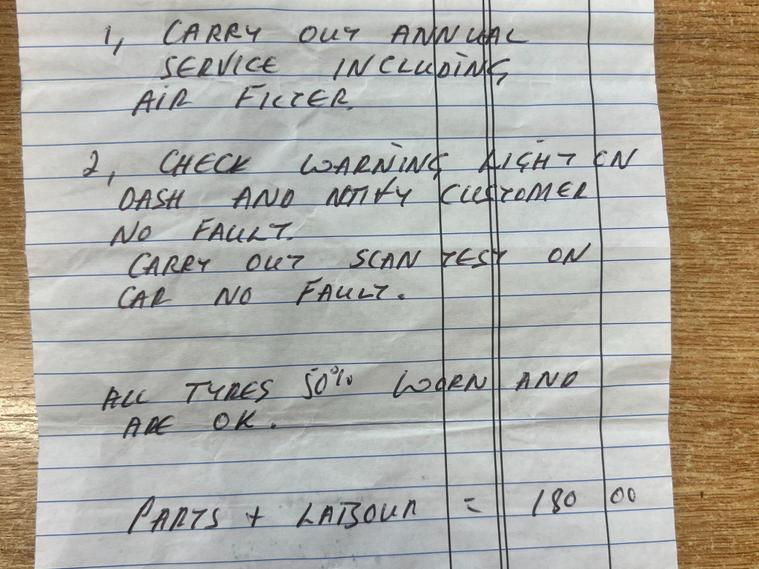 1, CARRY OUT ANNUAL
SERVICE INCLUDING
AIR FILTER.
2, CHECK WARNING LIGHT ON
DASH AND NOTIFY CUSTOMER
NO FAULT.
CARRY OUT SCAN TEST ON
CAR NO FAULT.
ALL TYRES 50% WORN AND
ARE OK.
PARTS + LABOUR = 180 00